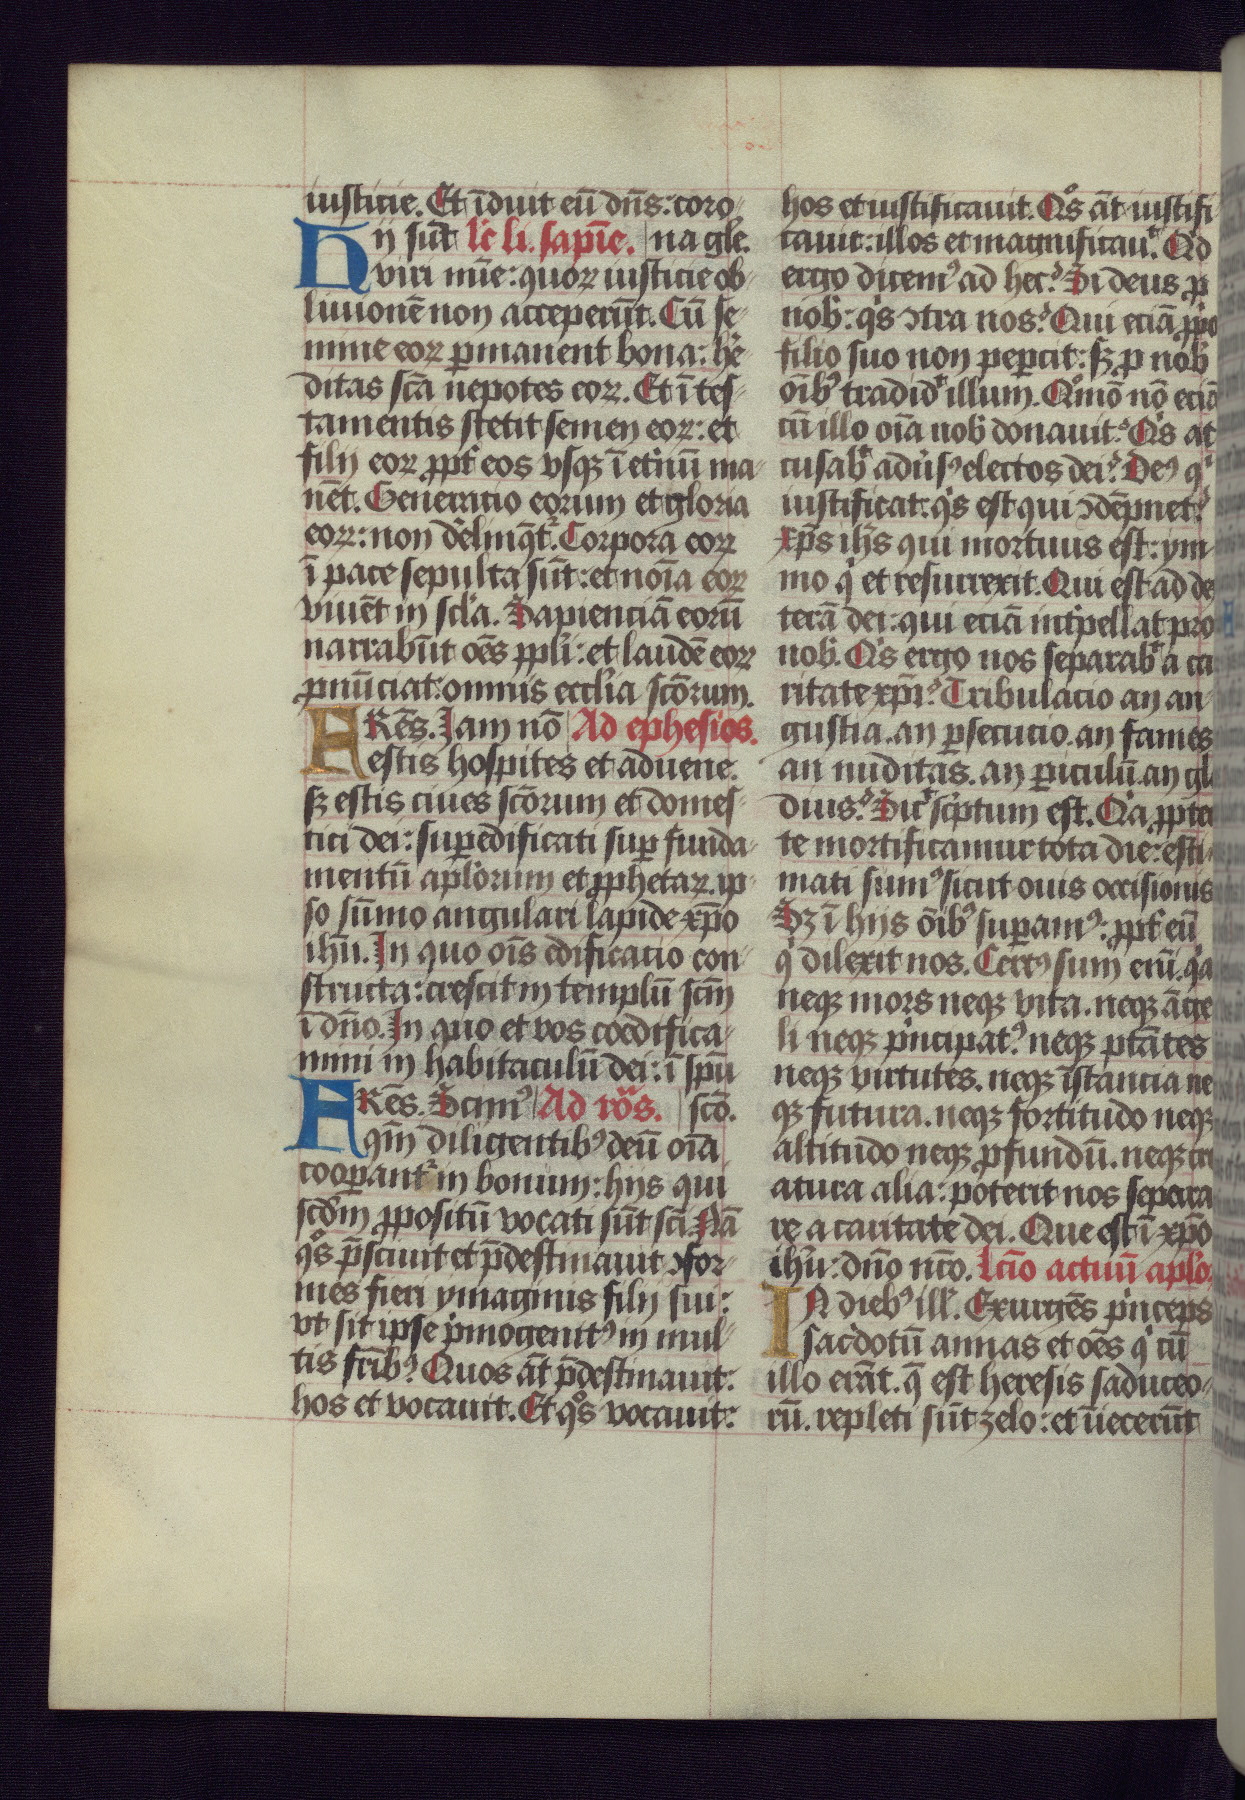 iusticie. Et īduit eū dn̄s: coro-
Hij sūt lc̄ li. sapīe. na gle.
viri mīe: quoꝝ iusticie ob-
liuionē non acceperūt. Cū se-
mine eoꝝ ꝑmanent bona: hr̄e
ditas scā nepotes eoꝝ. Et ī tes-
tamentis stetit semen eoꝝ: et
filij eoꝝ ꝓpt̄ eos vsqꝫ ī et̄nū ma-
nēt. Generacio eorum et gloria
eoꝝ: non deˀlinq̄tᷣ. Corpora eoꝝ
ī pace sepulta sūt: et noīa eoꝝ
viuēt in scl̄a. Sapienciā eorū
narrabūt oēs ppl̄i: et laudē eoꝝ
ꝓnūciat: omnis eccl̄ia scōrum.
ARēs. Jam nō Ad ephesios.
estis hospites et aduene.
sꝫ estis ciues scōrum et domes-
tici dei: suꝑedificati suꝑ funda-
mentū apl̄orum et ꝓphetaꝝ. ip-
so sūmo angulari lapide xp̄o
ihū. In quo oīs edificacio con-
structa: crescit in templū scm̄
ī dn̄o. In quo et vos coedifica-
mini in habitaculū dei: ī spū
ARēs. Scimꝰ Ad rōs. scō.
qm̄ diligentibꝰ deū oīa
cooꝑantᷣ in bonum: hijs qui
scd̄m ꝓpositū vocati sūt sci. Nā
qͦs p̄sciuit et p̄destinauit ꝯfor-
mes fieri ymaginis filij sui:
vt sit ipse pͥmogenitꝰ in mul-
tis frībꝰ. Quos āt p̄destinauit:
hos et vocauit. Et qͦs vocauit:
hos et iustificauit. Qͦs āt iustifi
cauit: illos et magnificauͭ. Qͥd
ergo dicemꝰ ad hec? Si deus ꝓ
nob̄: qͥs ꝯtra nos? Qui eciā ꝓpͥo
filio suo non peꝑcit: sꝫ ꝓ nob̄
oībꝰ tradidͭ illum. Qͦmō nō eciā
cū illo oīa nob̄ donauit? Qͥs ac
cusabͭ aduˀsꝰ electos dei? Deꝰ qͥ
iustificat. qͥs est qui ꝯdēpnet?
xp̄s ihs̄ qui mortuus est: ym-
mo qͥ et resurrexit. Qui est ad de
xterā dei: qui eciā intˀpellat pro
nob̄. Qͥs ergo nos separabͭ a ca
ritate xp̄i? Tribulacio an an-
gustia. an ꝑsecucio. an fames
an nuditas. an ꝑiculū. an gla
dius? Sicͭ scͥptum est. Qͥa ꝓpter
te mortificamur tota die: esti-
mati sumꝰ sicut ouis occisionis
Sꝫ ī hijs oībꝰ suꝑamꝰ: ꝓpt̄ eū
qͥ dilexit nos. Certꝰ sum enī. qͥa
neqꝫ mors neqꝫ vita. neqꝫ āge
li neqꝫ pͥncipatꝰ. neqꝫ ptātes
neqꝫ virtutes. neqꝫ īstancia ne
qꝫ futura. neqꝫ fortitudo neqꝫ
altitudo neqꝫ ꝓfundū. neqꝫ cre
atura alia: poterit nos separa
re a caritate dei. Que est ī xp̄o
ihū: dn̄o nr̄o. Lcīo actuū aplo.
IN diebꝰ illˀ. Exurgēs pͥnceps
sacˀdotū annas et oēs qͥ cū
illo erāt. q̄ est heresis saduceo-
rū. repleti sūt zelo: et īiecerūt